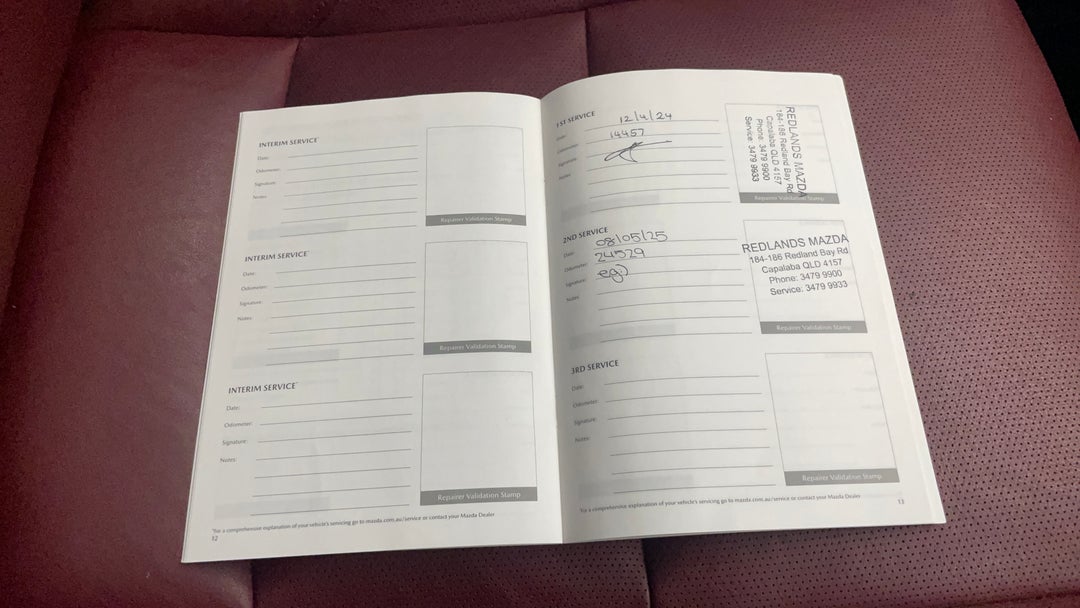 INTERIM SERVICE*
Date:
Odometer:
Signature:
Notes:
Repairer Validation Stamp
INTERIM SERVICE*
Date:
Odometer:
Signature:
Notes:
Repairer Validation Stamp
INTERIM SERVICE*
Date:
Odometer:
Signature:
Notes:
Repairer Validation Stamp
*For a comprehensive explanation of your vehicle's servicing go to mazda.com.au/service or contact your Mazda Dealer
12
1ST SERVICE
Date: 12/4/24
Odometer: 14457
Signature:
Notes:
REDLANDS MAZDA
184-186 Redland Bay Rd
Capalaba QLD 4157
Phone: 3479 9900
Service: 3479 9933
Repairer Validation Stamp
2ND SERVICE
Date: 08/05/25
Odometer: 24529
Signature:
Notes:
REDLANDS MAZDA
184-186 Redland Bay Rd
Capalaba QLD 4157
Phone: 3479 9900
Service: 3479 9933
Repairer Validation Stamp
3RD SERVICE
Date:
Odometer:
Signature:
Notes:
Repairer Validation Stamp
*For a comprehensive explanation of your vehicle's servicing go to mazda.com.au/service or contact your Mazda Dealer
13